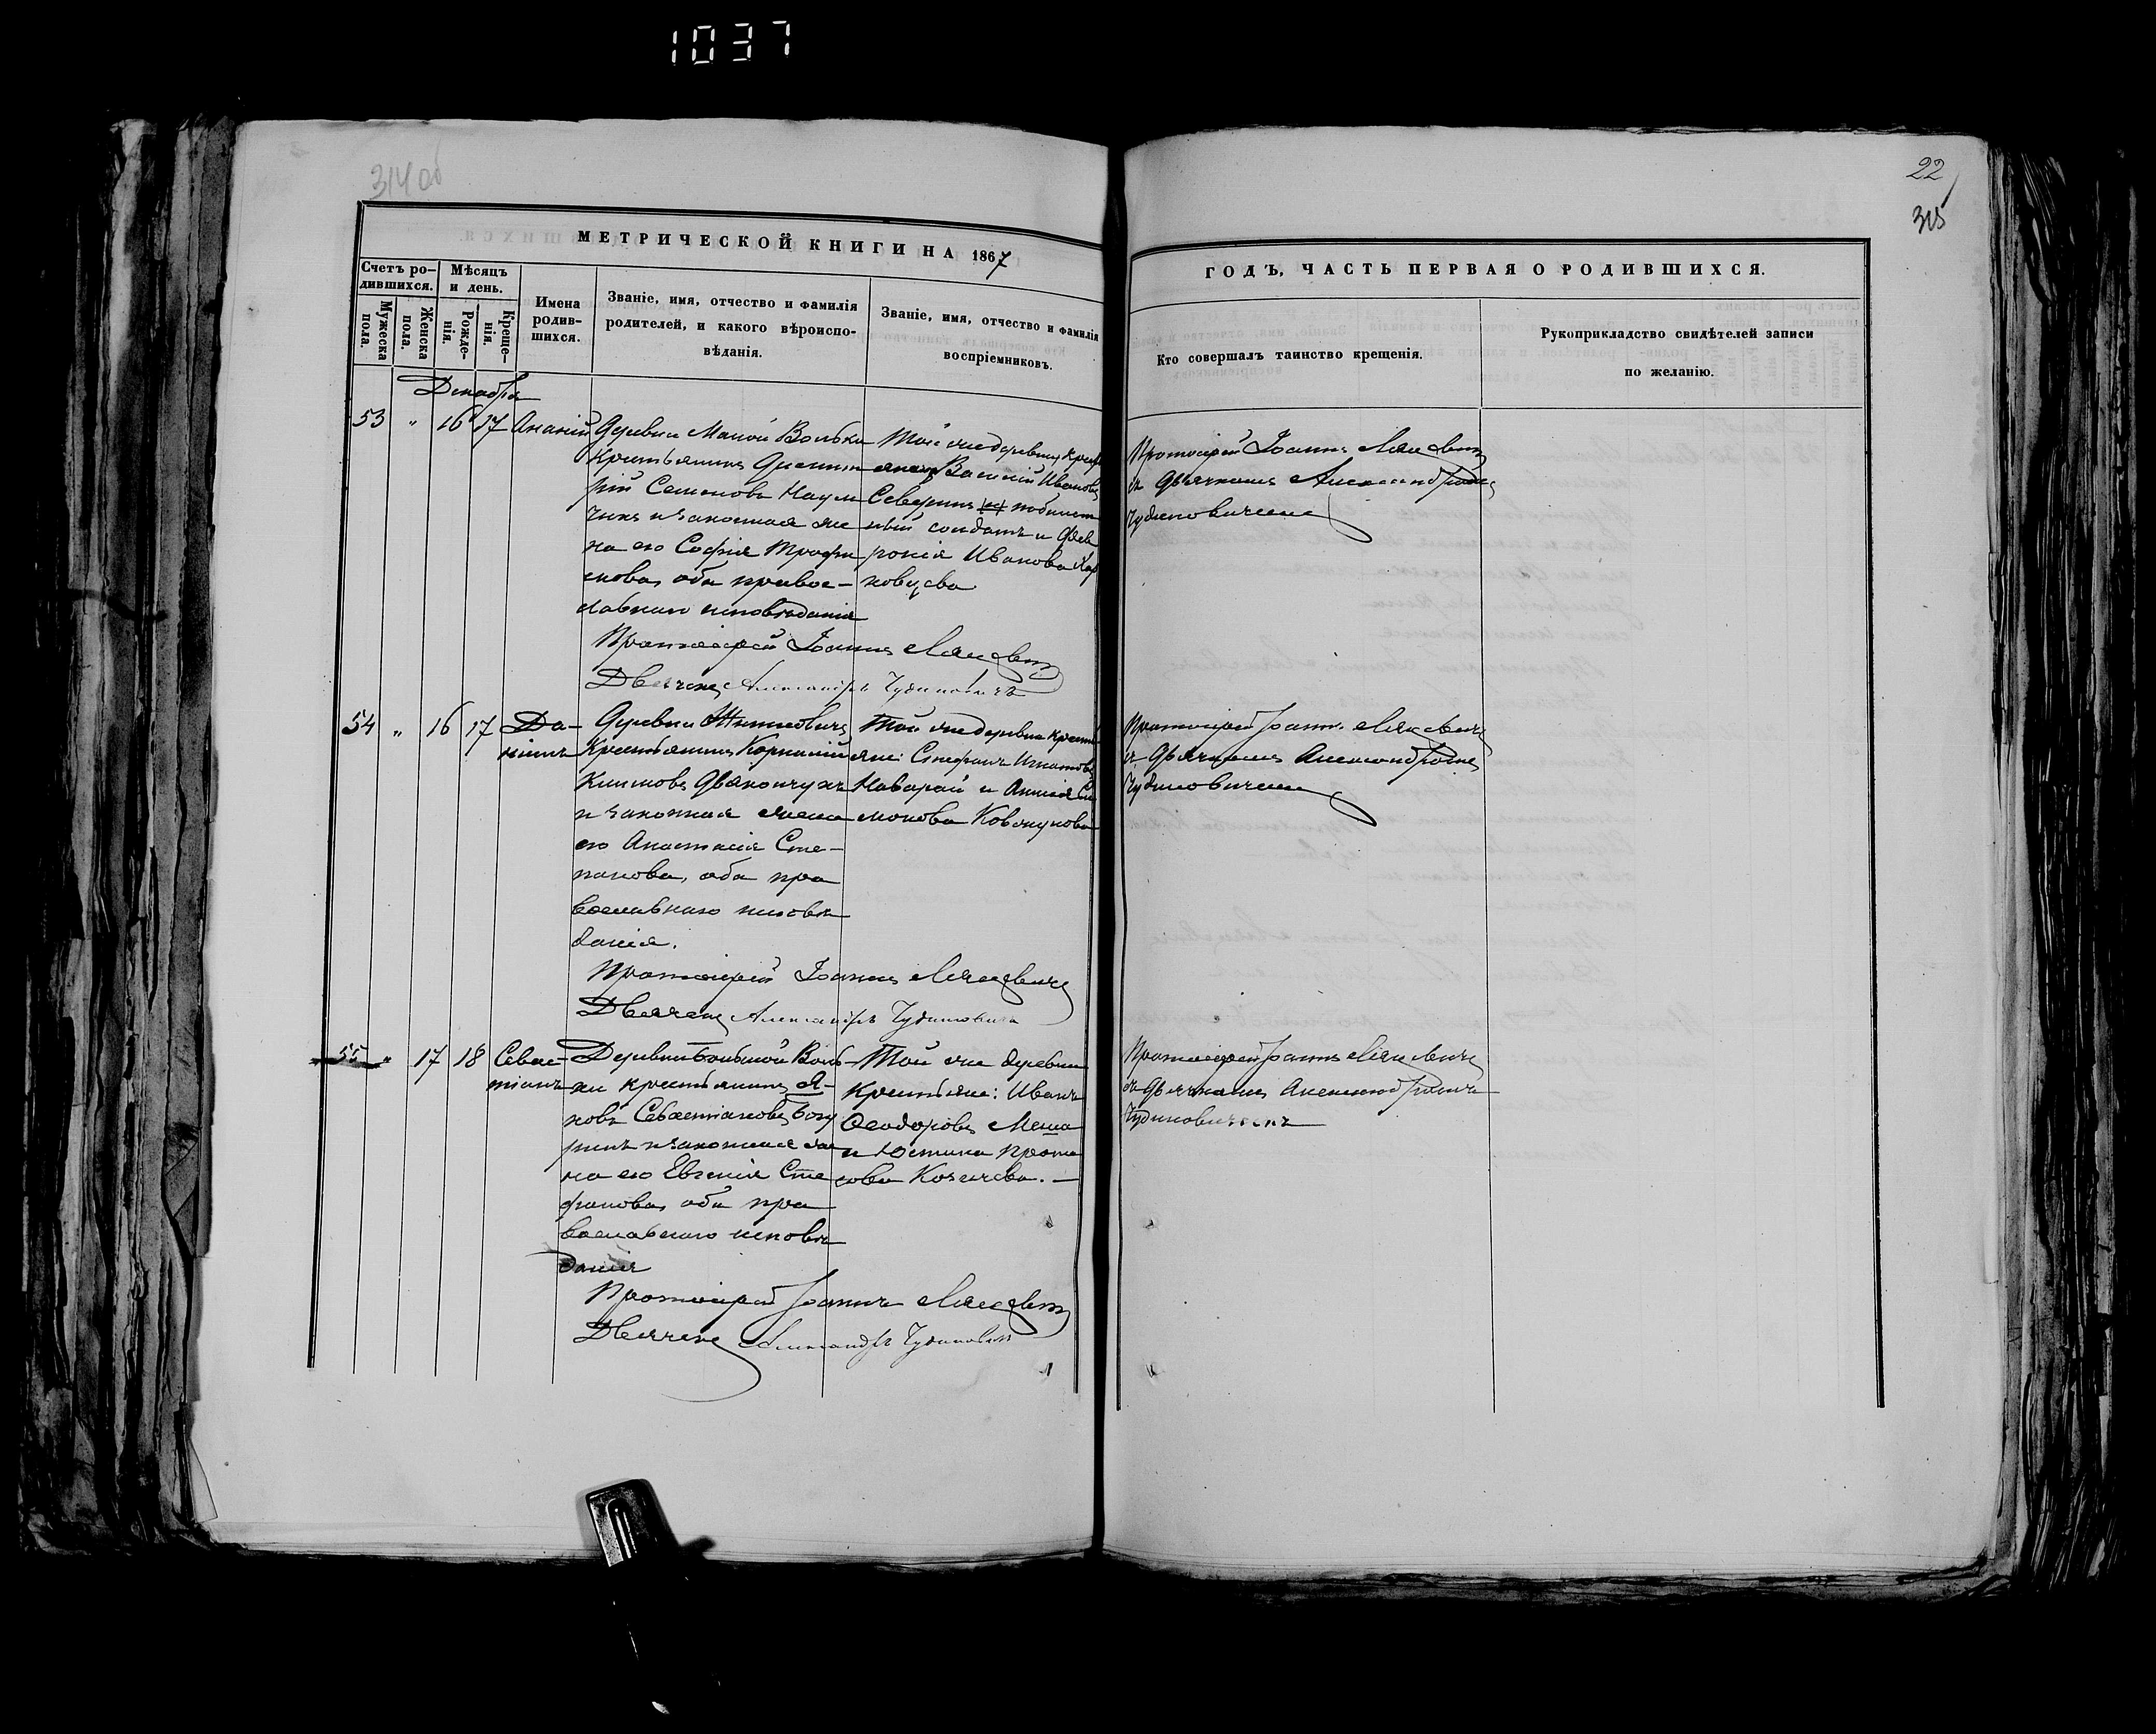 1037
314 об
22
315
МЕТРИЧЕСКОЙ КНИГИ НА 1867
Счетъ ро-
дившихся.
Мужеска пола.
Женска пола.
Мѣсяцъ
и день.
Рожде-
нія.
Креще-
нія.
Имена
родив-
шихся.
Званіе, имя, отчество и фамилія
родителей, и какого вѣроиспо-
вѣданія.
Званіе, имя, отчество и фамилія
воспріемниковъ.
Декабря
53 " 16 17 Ананій
Деревни Малой Вольки
крестьянинъ Димит
рій Семеновъ Наум
чикъ и законная же
на его Софія Трофи
мова, оба правос-
лавнаго исповѣданія
Той же деревни крест
яне Василій Ивановъ
солдатъ и Фев
ронія Иванова
Протоіерей Іоаннъ
Дьячекъ Александръ Чудиновичъ
54 " 16 17 Да-
ніилъ
Деревни
Крестьянинъ Корнилій
Климовъ Дьякончукъ
и законная жена
его Анастасія Сте-
панова, оба пра
вославнаго исповѣ
данія.
Той же деревни крестья
яне: Стефанъ Игнатовъ
и Анна Си
монова
Протоіерей Іоаннъ
Дьячекъ Александръ Чудиновичъ
55 " 17 18 Севас-
тіанъ
Деревни Большой Воль-
ки крестьянинъ Я-
ковъ Севастіановъ
и законная же
на его Евгенія Сте
фанова, оба пра
вославнаго исповѣ
данія
Той же деревни
крестьяне: Иванъ
Ѳеодоровъ
и Юстина
Протоіерей Іоаннъ
Дьячекъ Александръ Чудиновичъ
ГОДЪ, ЧАСТЬ ПЕРВАЯ О РОДИВШИХСЯ.
Кто совершалъ таинство крещенія.
Рукоприкладство свидѣтелей записи
по желанію.
Протоіерей Іоаннъ
съ Дьячкомъ Александромъ
Чудиновичемъ
Протоіерей Іоаннъ
съ Дьячкомъ Александромъ
Чудиновичемъ
Протоіерей Іоаннъ
съ Дьячкомъ Александромъ
Чудиновичемъ